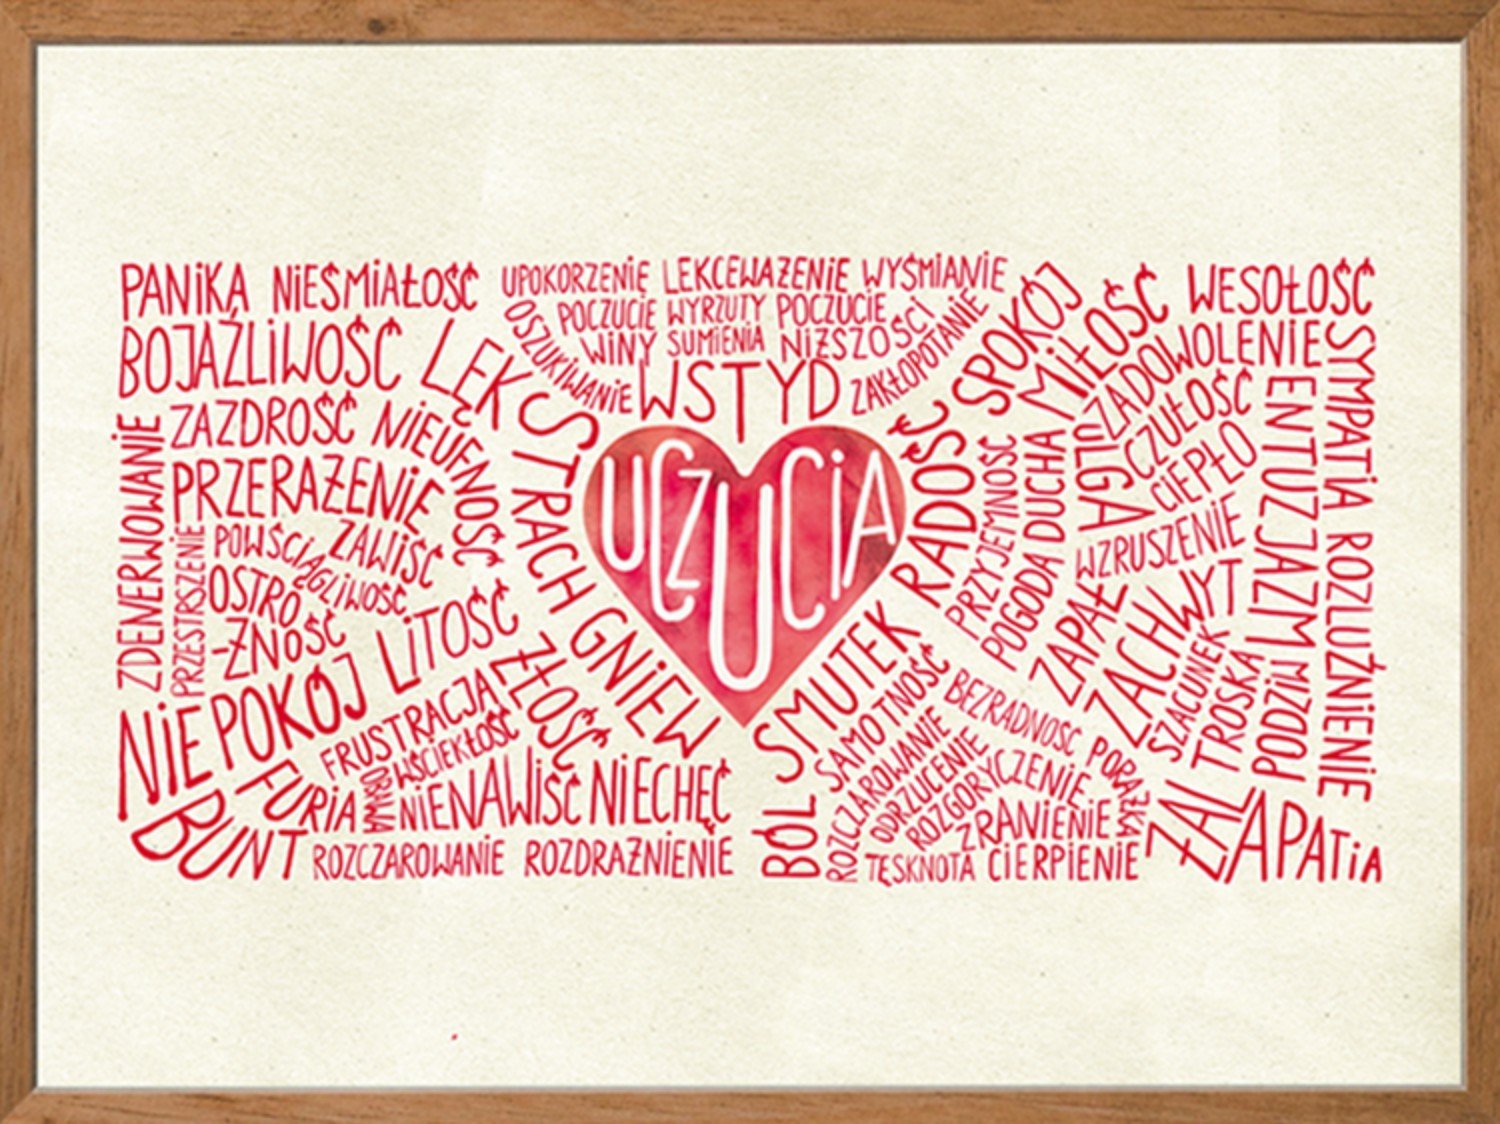 UCZUCIA
PANIKA NIEŚMIAŁOŚĆ
BOJAŹLIWOŚĆ
LĘK
ZAZDROŚĆ NIEUFNOŚĆ
STRACH
ZDENERWOWANIE
PRZERAŻENIE
PRZESTRSZENIE
POWŚCIĄGLIWOŚĆ
ZAWIŚĆ
OSTRO
-ŻNOŚĆ
NIEPOKÓJ
LITOŚĆ
ZŁOŚĆ
GNIEW
FRUSTRACJA
WŚCIEKŁOŚĆ
FURIA
BUNT
NIENAWIŚĆ
NIECHĘĆ
ROZCZAROWANIE
ROZDRAŻNIENIE
UPOKORZENIE
LEKCEWAŻENIE
WYŚMIANIE
OSZUKIWANIE
POCZUCIE
WINY
WYRZUTY
SUMIENIA
POCZUCIE
NIŻSZOŚCI
ZAKŁOPOTANIE
WSTYD
SPOKÓJ
MIŁOŚĆ
WESOŁOŚĆ
RADOŚĆ
PRZYJEMNOŚĆ
POGODA DUCHA
ULGA
ZADOWOLENIE
CZUŁOŚĆ
CIEPŁO
WZRUSZENIE
ZAPAŁ
ZACHWYT
SZACUNEK
TROSKA
ENTUZJAZM
PODZIW
SYMPATIA
ROZLUŹNIENIE
SMUTEK
BÓL
SAMOTNOŚĆ
ROZCZAROWANIE
ODRZUCENIE
ROZGORYCZENIE
BEZRADNOŚĆ
PORAŻKA
ZRANIENIE
TĘSKNOTA
CIERPIENIE
ŻAL
APATIA